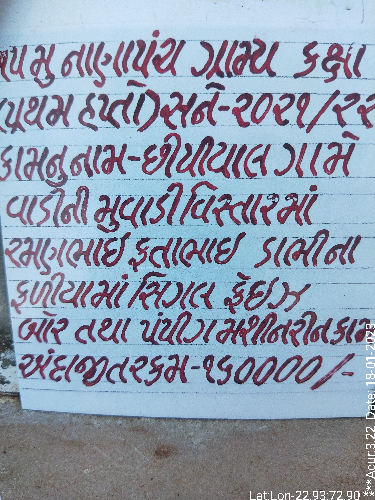 ૧૫ મુ નાણાપંચ ગ્રામ્ય કક્ષા
(પ્રથમ હપ્તો) સને-૨૦૨૧/૨૨
કામનુ નામ-છીપીયાલ ગામે
વાડીની મુવાડી વિસ્તારમાં
રમણભાઇ ફતાભાઇ ડાભીના
ફળીયામાં સિંગલ ફેઇઝ
બોર તથા પંપીગ મશીનરીન કામ
અંદાજીત રકમ-૧૬૦૦૦૦/-
Lat:Lon-22.93:72.90 ***Acur:3.22 Date: 18-01-2023